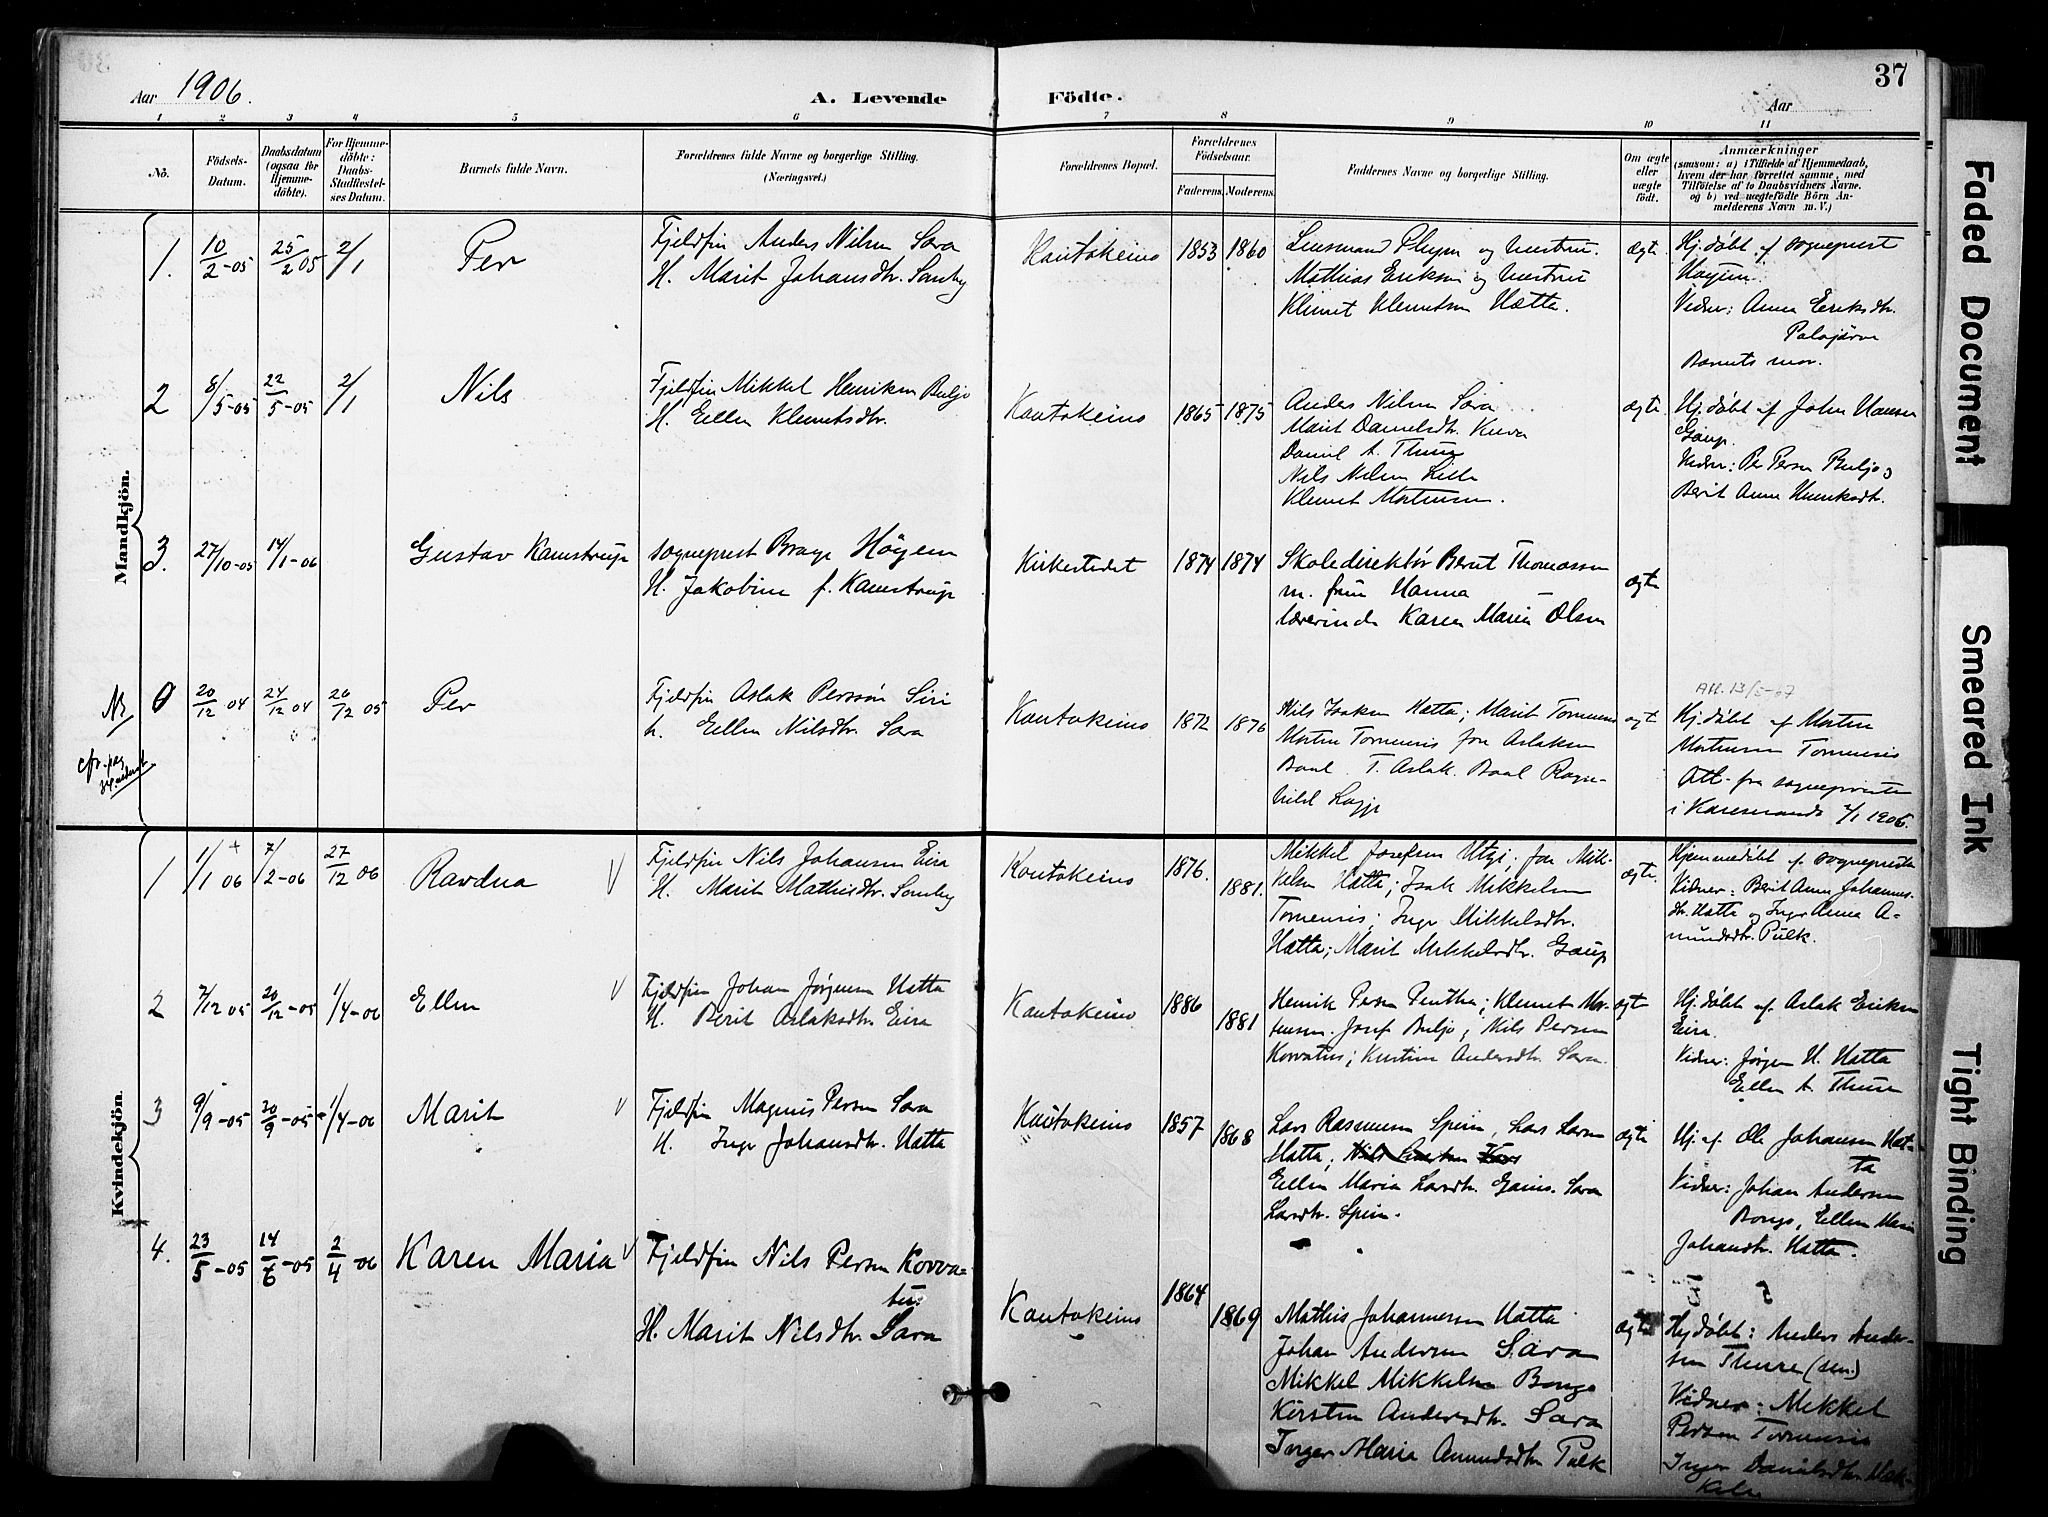 37
Aar 1906.
A. Levende Födte.
Aar
1 2 3 4 5 6 7 8 9 10 11
No.
Födsels-
Datum.
Daabsdatum
(ogsaa for
Hjemme-
döbte).
For Hjemme-
döbte:
Daabs-
Stadfæstel-
ses Datum.
Barnets fulde Navn.
Forældrenes fulde Navne og borgerlige Stilling.
(Næringsvei.)
Forældrenes Bopæl.
Forældrenes
Födselsaar.
Faderens. Moderens.
Faddernes Navne og borgerlige Stilling.
Om ægte
eller
uægte
födt.
Anmærkninger
(saasom: a) i Tilfælde af Hjemmedaab,
hvem der har forrettet samme, med
Tilföielse af to Daabsvidners Navne.
og b) ved uægtefödte Börn An-
melderens Navn m. V.)
Mandkjön.
1. 10/2-05 25/2 05 2/1 Per
Fjeldfin Anders Nilsen Sara
H. Marit Johansdtr. Somby
Kautokeino 1853 1860
Lensmand og hustru.
Mathias Eriksen og hustru
Klemet Klemetsen Hætta.
ægte
Hj. døbt af sogneprest
Høgem.
Vidner: Anna Eriksdtr.
Palojärvi
Barnets mor.
2 8/5-05 22/5-05 2/1 Nils
Fjeldfin Mikkel Henriksen Buljo
H. Ellen Klemetsdtr.
Kautokeino 1865 1875
Anders Nilsen Sara
Marit Danielsdtr. Kuva
Daniel A. Thuri
Nils Nilsen Lille
Klemet Mortensen.
ægte
Hj. døbt af John Hansen
Gaup.
Vidner: Per Persen Buljo og
Berit Anna Henriksdtr.
3. 27/10-05 14/1-06 Gustav Kamstrup
sogneprest Brage Höyem
H. Jakobine f. Kamstrup
Kirkestedet 1874 1874
Skoledirektør Bernt Thomassen
m. frue Hanna
lærerinde Karen Marie Olsen
ægte
Nr 0 20/12 04 24/12 04 26/12 05 Per
Fjeldfin Aslak Persson Siri
h. Ellen Nilsdtr. Sara
Kautokeino 1872 1876
Nils Isaksen Hætta; Marit Tornensis
Morten Tornensis fru Aslaksen
Baal T. Aslak Baal Ragn-
hild Lagje
ægte
Att. 13/5-67
Hj. døbt af Morten
Mortensen Tornensis
Att. fra sogneprestn
i Karesuando 2/1 1906.
cfr. pag
Kvindekjön.
1 1/1 06 7/2-06 27/12 06 Ravdna V
Fjeldfin Nils Johansen Eira
H. Marit Mathisdtr. Somby
Kautokeino 1876. 1881.
Mikkel Josefsen Utsi; fon Mik-
kelsen Hætta; Isak Mikkelsen
Tornensis; Inge Mikkelsdtr.
Hætta; Marit Mikkelsdtr. Gaup
ægte.
Hjemmedøbt af sogneprestn
Vidner: Berit Anna Johannes-
dtr. Hætta og Inger Anna A-
mundsdtr. Pulk.
2 7/12 05 20/12-05 1/4-06 Ellen V
Fjeldfin Johan Jørgensen Hætta
H. Berit Aslaksdtr. Eira
Kautokeino 1886 1881
Henrik Persen Pentha; Klemet Mor-
tensen. Josef Buljo; Nils Persen
Kovvatus; Kristine Andersdtr. Sara.
ægte
Hj. døbt af Aslak Eriksen
Eira.
Vidner: Jørgen H. Hætta
Ellen A. Thuri
3 9/9-05 20/9-05 1/4-06 Marit V
Fjeldfin Magnus Persen Sara
H. Inge Johansdtr. Hætta
Kautokeino 1857 1868
Lars Rasmussen Spein, Lars Larsen
Hætta,
Ellen Maria Larsdtr. Gaino. Sara
Larsdtr. Spein.
ægte
Hj. af Ole Johansen Hæt-
ta
Vidner: Johan Andersen
Bongo, Ellen Marie
Johansdtr. Hætta.
4. 23/5-05 14/6-05 2/4-06 Karen Maria V
Fjeldfin Nils Persen Kovva-
tus
H. Marit Nilsdtr. Sara
Kautokeino 1864 1869
Mathis Johannessen Hætta
Johan Andersen Sara
Mikkel Mikkelsen Bongo
Kirsten Andersdtr. Sara
Inger Maria Amundsdtr Pulk
ægte
Hj. døbt: Anders Ander-
sen Thure (sen.)
Vidner: Mikkel
Persen Tornensis
Inger Danielsdtr. Mak-
kela
Faded Document
Smeared Ink
Tight Binding